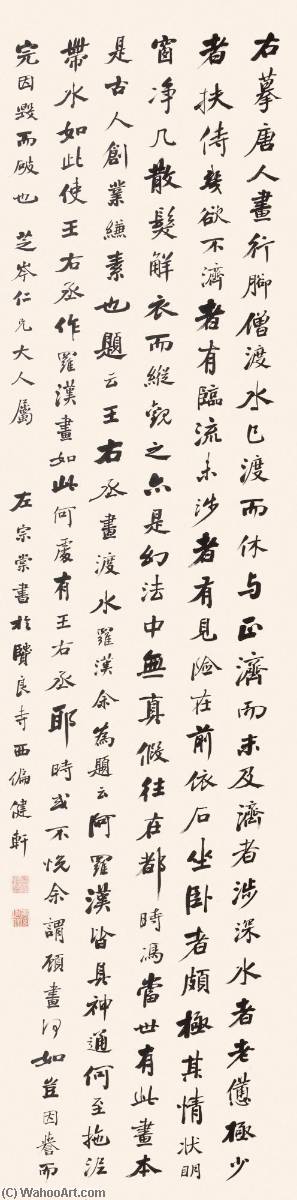 右摹唐人畫行腳僧渡水已渡而休与正濟而未及濟者涉深水者老憊極少
者扶侍幾欲不濟者有臨流未涉者有見險在前依石坐卧者頗極其情狀明
窗净几散髮解衣而縱觀之亦是幻法中無真假往在都時馮當世有此畫本
是古人創業縑素也題云王右丞畫渡水羅漢余為題云阿羅漢皆具神通何至拖泥
帶水如此使王右丞作羅漢畫如此何處有王右丞耶時或不悅余謂顧畫何如豈因譽而
完因毀而破也 芝岑仁兄大人屬 左宗棠書於賢良寺西偏健軒
(C) WahooArt.com